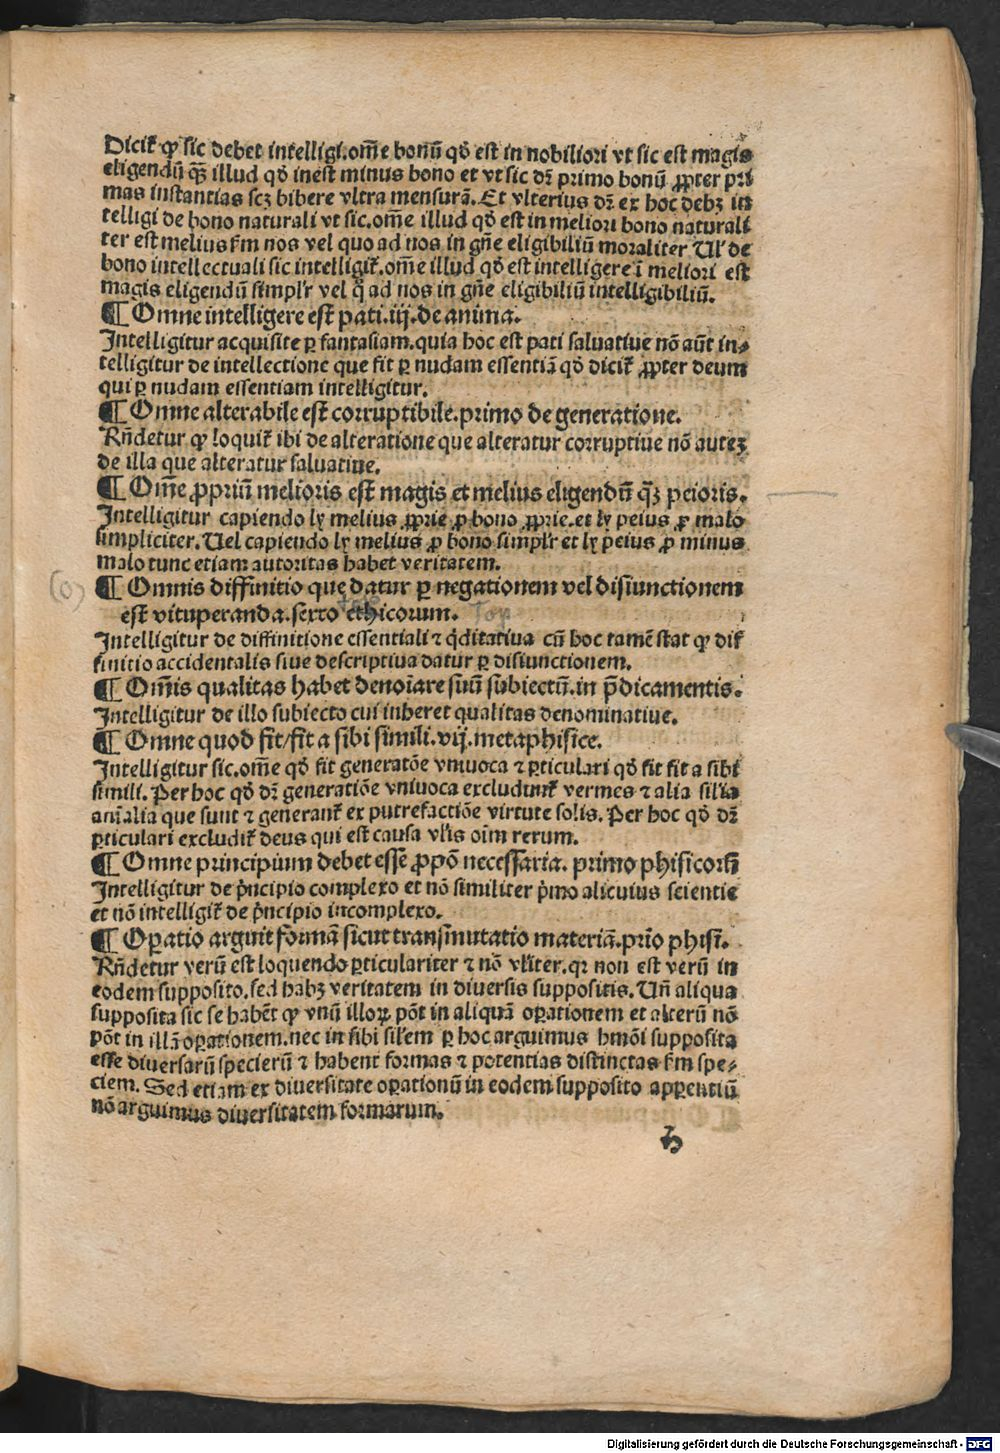 Dicit᷑ ꝙ sic debet intelligi.om̄e bonū qḋ est in nobiliori vt sic est magis
eligendū qꝫ̄ illud qḋ inest minus bono et vt sic dꝛ̄ primo bonū ꝓpter pri
mas instantias scꝫ bibere vltra mensurā. Et vlterius dꝛ̄ ex hoc debꝫ in
telligi de bono naturali vt sic.om̄e illud qḋ est in meliori bono naturali
ter est melius ẜm nos vel quo ad nos in gn̄e eligibiliū moraliter Ul' de
bono intellectuali sic intelligit᷑.om̄e illud qḋ est intelligere ī meliori est
magis eligendū simpl'r vel q̊ ad nos in gn̄e eligibiliū intelligibiliū.
¶ Omne intelligere est pati.iij.de anima.
Intelligitur acquisite ꝑ fantasiam.quia hoc est pati saluatiue nō aūt in⸗
telligitur de intellectione que fit ꝑ nudam essentiā qḋ dicit᷑ ꝓpter deum
qui ꝑ nudam essentiam intelligitur.
¶ Omne alterabile est corruptibile.primo de generatione.
Rn̄detur ꝙ loquit᷑ ibi de alteratione que alteratur corruptiue nō auteꝫ
de illa que alteratur saluatiue.
¶ Om̄e ꝓpriū melioris est magis et melius eligendū qꝫ̄ peioris.
Intelligitur capiendo ly melius ꝓprie ꝓ bono ꝓprie.et ly peius ꝓ malo
simpliciter. Uel capiendo ly melius ꝓ bono simpl'r et ly peius ꝓ minus
malo tunc etiam autoritas habet veritatem.
(0) ¶ Omnis diffinitio que datur ꝑ negationem vel disiunctionem
est vituperanda.sexto ethicorum. Top
Intelligitur de diffinitione essentiali ⁊ qͥditatiua cū hoc tamē stat ꝙ dif
finitio accidentalis siue descriptiua datur ꝑ disiunctionem.
¶ Om̄is qualitas habet denoīare suū subiectū.in p̄dicamentis.
Intelligitur de illo subiecto cui inheret qualitas denominatiue.
¶ Omne quod fit/fit a sibi simili.vij.metaphisice.
Intelligitur sic.om̄e qḋ fit generatōe vniuoca ⁊ ꝑticulari qḋ fit fit a sibi
simili. Per hoc qḋ dꝛ̄ generatiōe vniuoca excludunt᷑ vermes ⁊ alia sil'ia
aīalia que sunt ⁊ generant᷑ ex putrefactiōe virtute solis. Per hoc qḋ dꝛ̄
ꝑticulari excludit᷑ deus qui est causa vl'is oīm rerum.
¶ Omne principium debet esse ꝓpō necessaria. primo phisicoꝝ
Intelligitur de pͥncipio complexo et nō similiter pͥmo alicuius scientie
et nō intelligit᷑ de pͥncipio incomplexo.
¶ Oꝑatio arguit formā sicut transmutatio materiā.prīo phisi.
Rn̄detur verū est loquendo ꝑticulariter ⁊ nō vl'iter.qꝛ non est verū in
eodem supposito.sed habꝫ veritatem in diuersis suppositis. Un̄ aliqua
supposita sic se habēt ꝙ vnū illoꝝ pōt in aliquā oꝑationem et alterū nō
pōt in illā oꝑationem.nec in sibi sil'em ꝑ hoc arguimus hmōi supposita
esse diuersarū specierū ⁊ habent formas ⁊ potentias distinctas ẜm spe⸗
ciem. Sed etiam ex diuersitate oꝑationū in eodem supposito apꝑentiū
nō arguimus diuersitatem formarum.
h
Digitalisierung gefördert durch die Deutsche Forschungsgemeinschaft - DFG